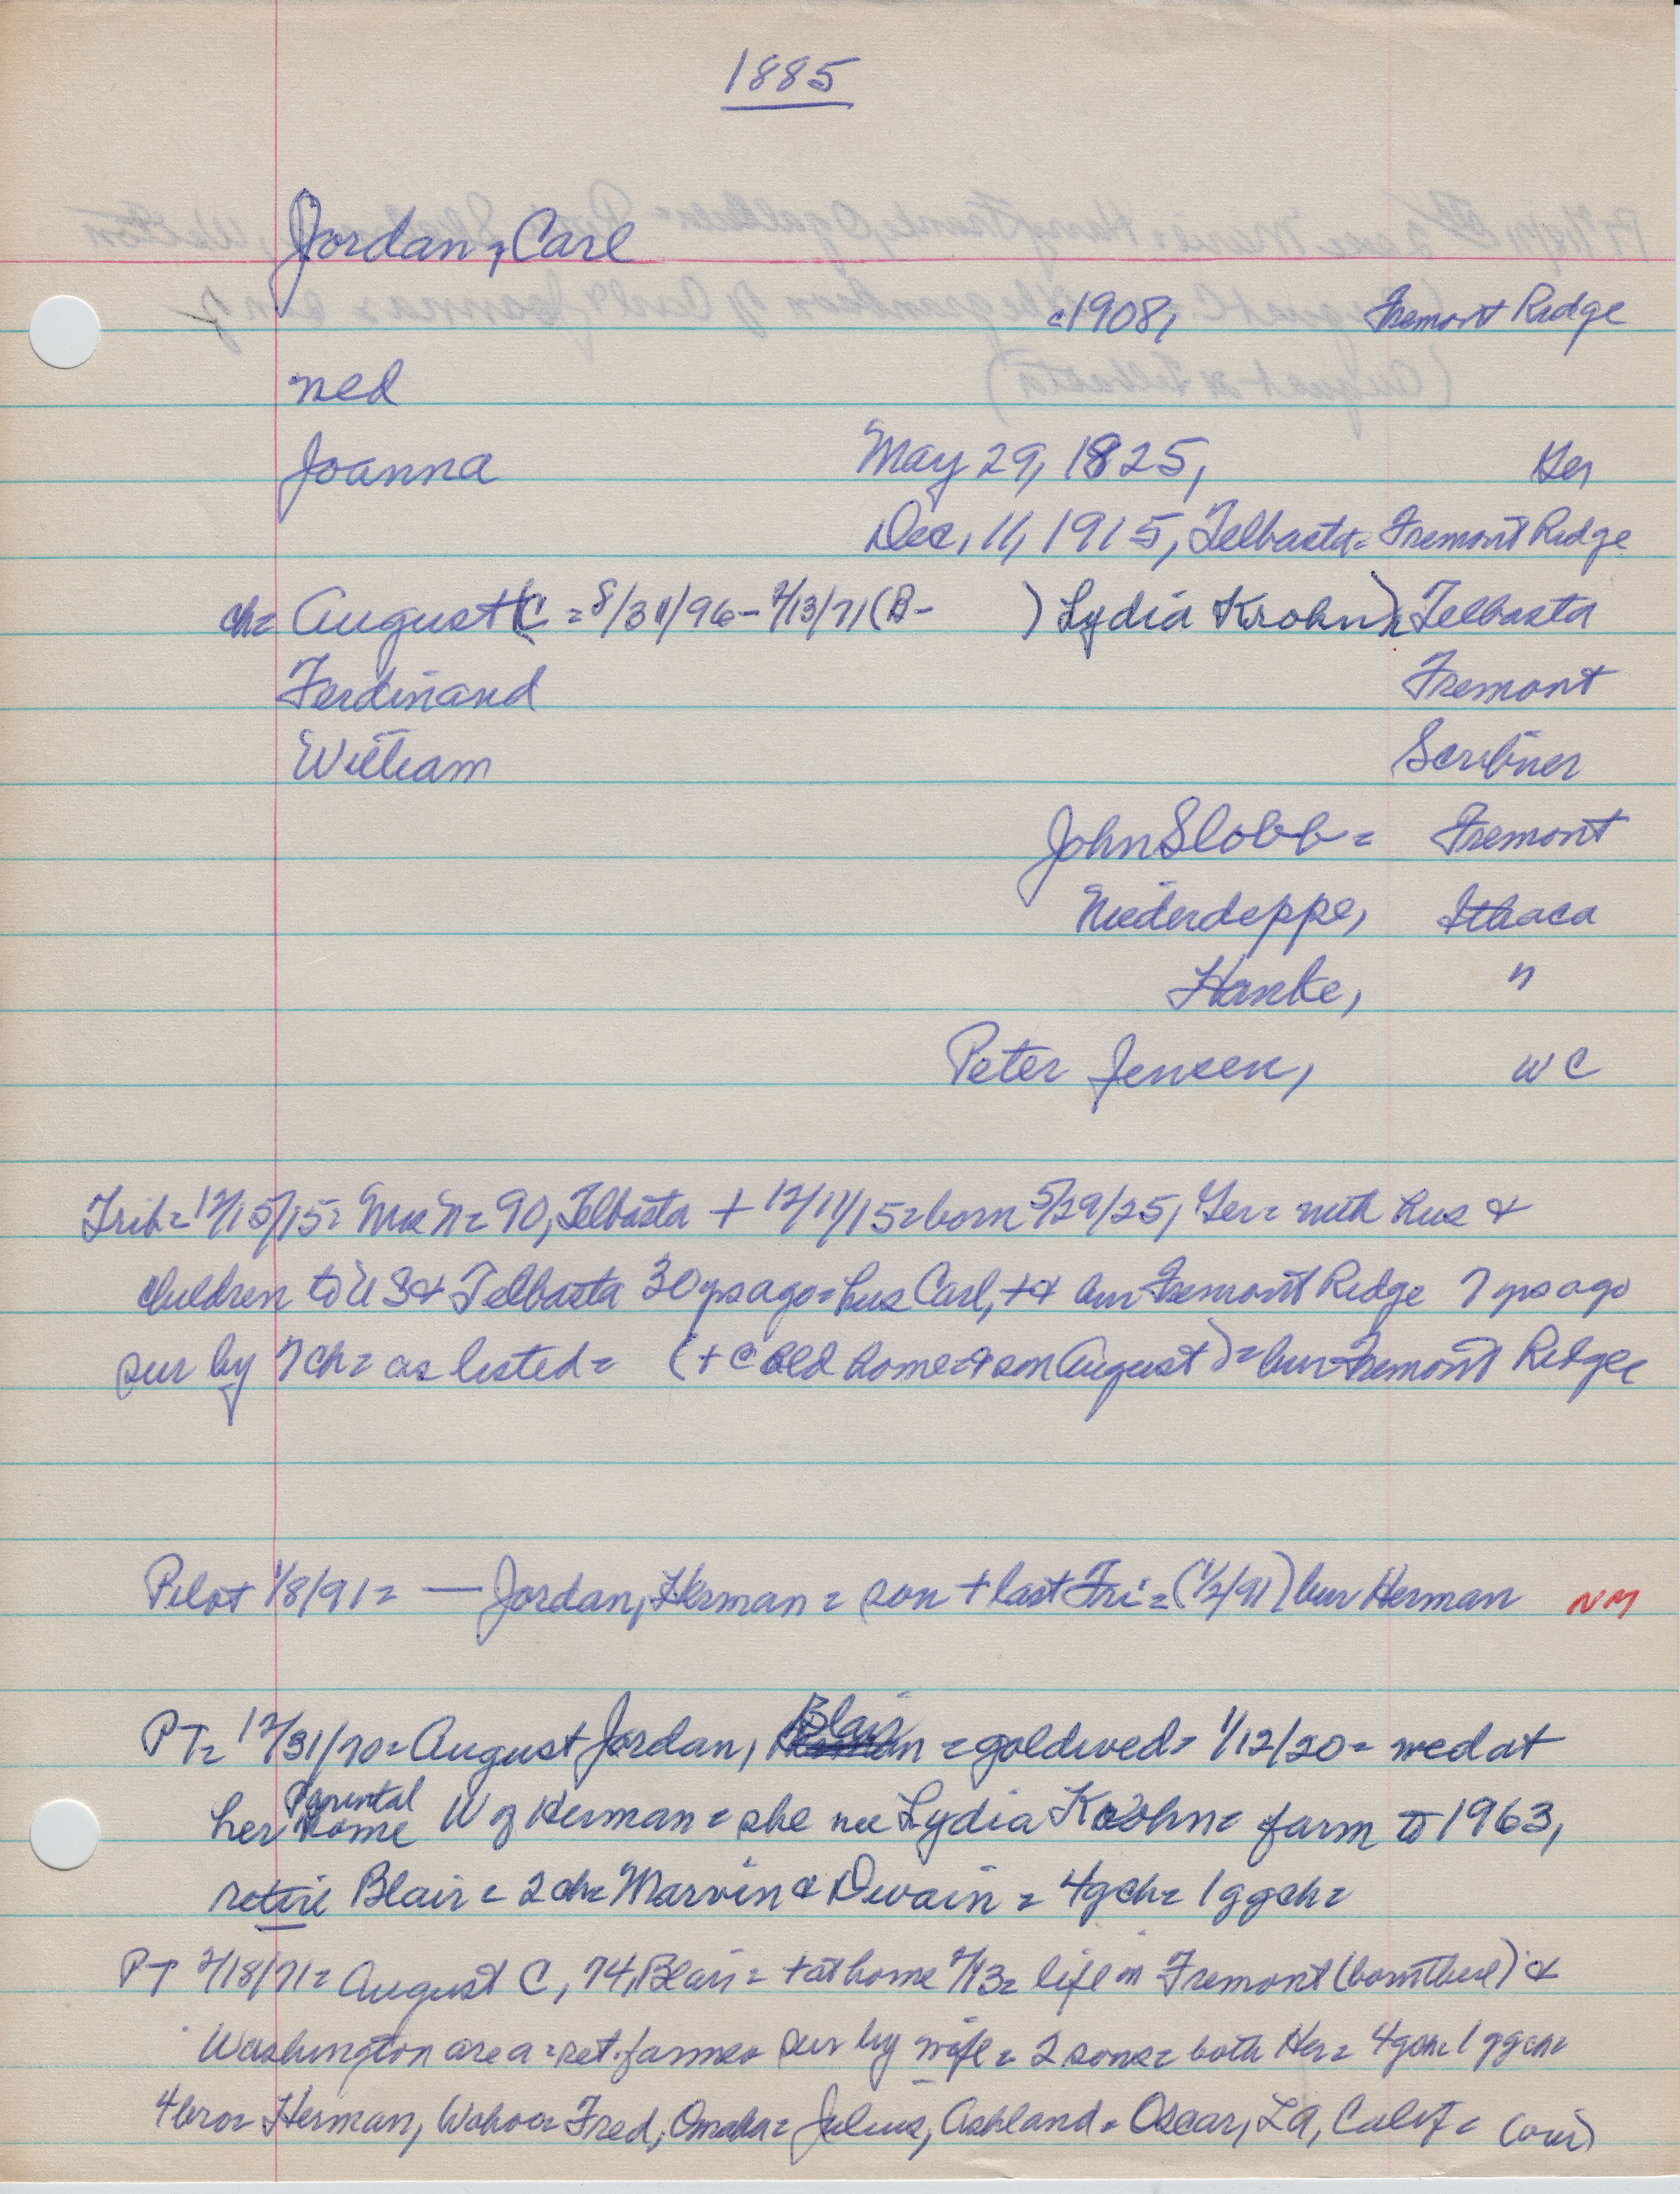 1885
Jordan, Carl
c1908, Fremont Ridge
ned
Joanna May 29, 1825, Ger
Dec, 11, 1915, Telbasta = Fremont Ridge
ch= August (C = 8/31/96 - 2/13/71 (B- ) Lydia Krohn) Telbasta
Ferdinand Fremont
William Scribner
John Slobb = Fremont
Niederdeppe, Ithaca
Hanke, "
Peter Jensen, WC
Trib = 12/15/15 = Mrs = 90, Telbasta + 12/11/15 = born 5/29/25, Ger = with hus &
children to US & Telbasta 30 yrs ago = hus Carl, + & bur Fremont Ridge 7 yrs ago
sur by 7 ch = as listed = (+ @ old home = & son August) = bur Fremont Ridge
Pilot 1/8/91 = — Jordan, Herman = son + last Fri = (1/2/91) bur Herman NM
PT = 12/31/70 = August Jordan, Blair = goldwed = 1/12/20 = wed at
her parental home W of Herman = she nee Lydia Krohn = farm to 1963,
retire Blair = 2 ch = Marvin & Dwain = 4 gch = 1 ggch =
PT 2/18/71 = August C, 74, Blair = + at home 2/13 = life in Fremont (born there) &
Washington area = ret. farmer sur by wife = 2 sons = both Her = 4 gch = 1 ggch =
4 bro = Herman, Wahoo = Fred, Omaha = Julius, Ashland = Oscar, LA, Calif = (over)